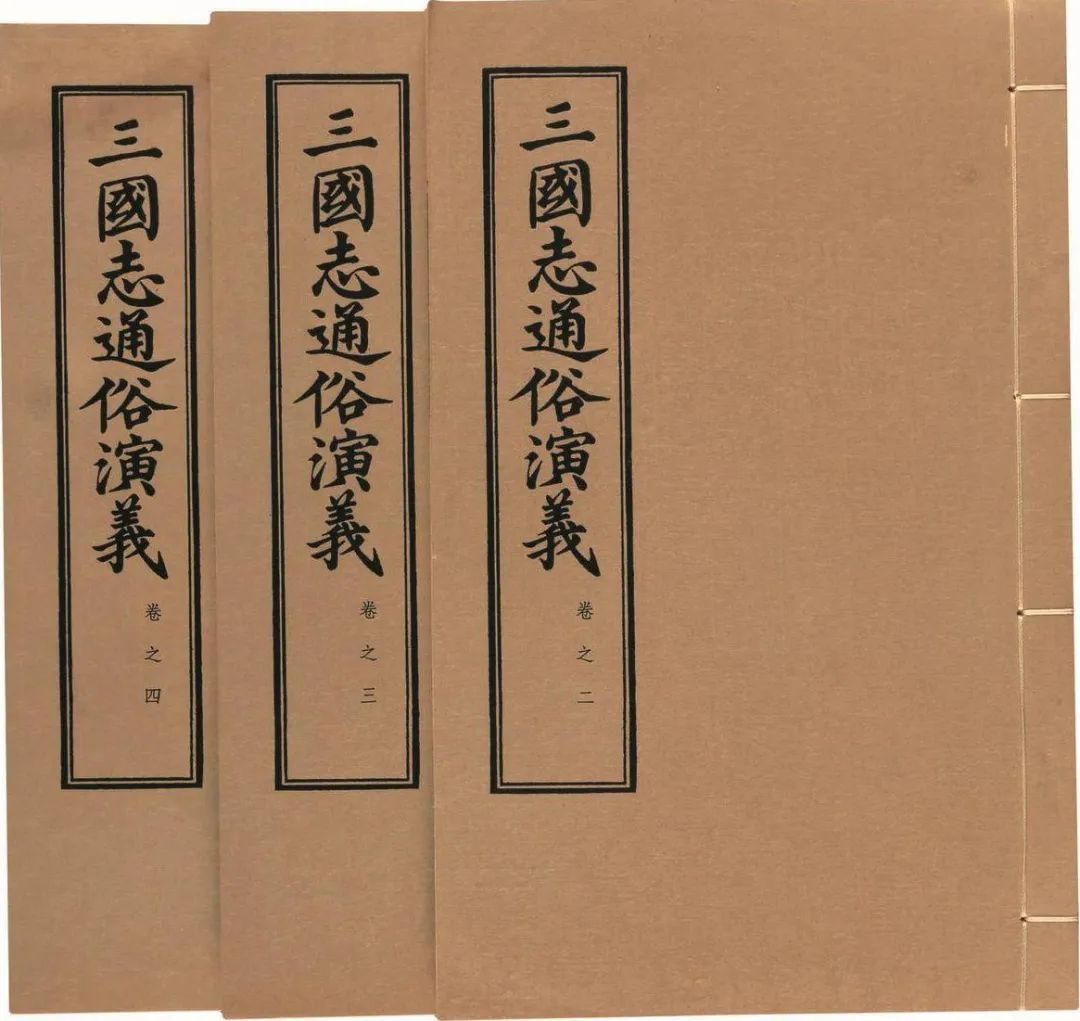 三國志通俗演義
卷之二
三國志通俗演義
卷之三
三國志通俗演義
卷之四